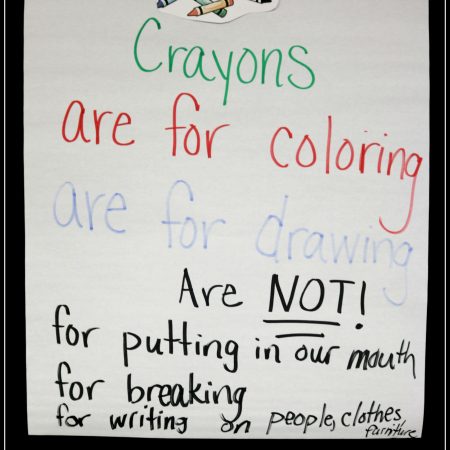 Crayons
are for coloring
are for drawing
Are NOT!
for putting in our mouth
for breaking
for writing on people, clothes,
furniture